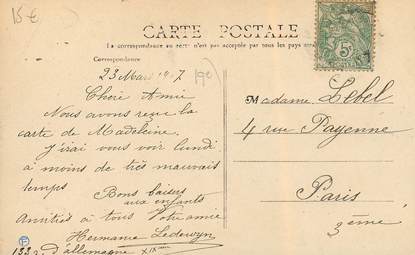 15 €
CARTE POSTALE
La correspondance au recto n'est pas acceptée par tous les pays
Correspondance
23 Mars 1907
Chère Amie
Nous avons reçu la
carte de Madeleine.
J'irai vous voir lundi
à moins de très mauvais
temps
Bons baisers
aux enfants
Amitiés à tous Votre amie
Hermance
d'allemagne XIXème
Madame Lebel
4 rue Payenne
Paris
3ème
5c